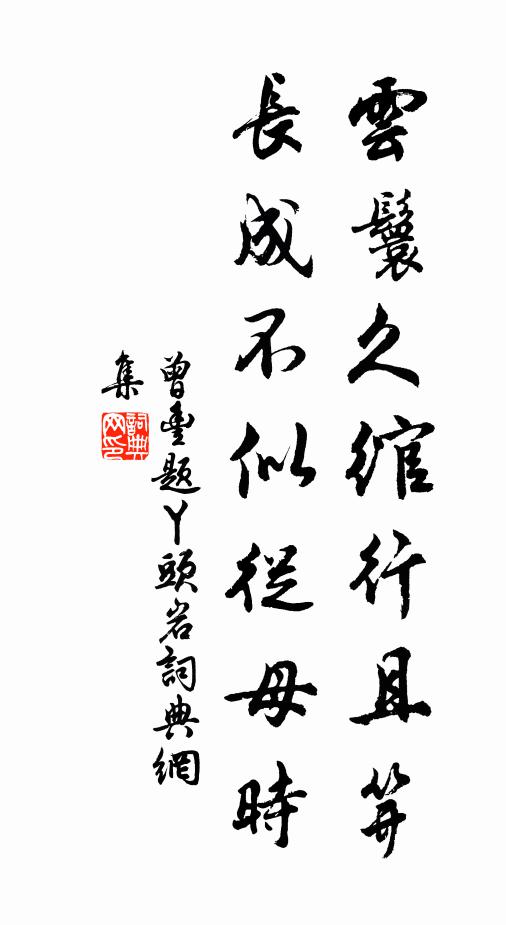 雲鬟久綰行且笄
長成不似從母時
曾豐題丫頭岩詞典網
集
詞典網印